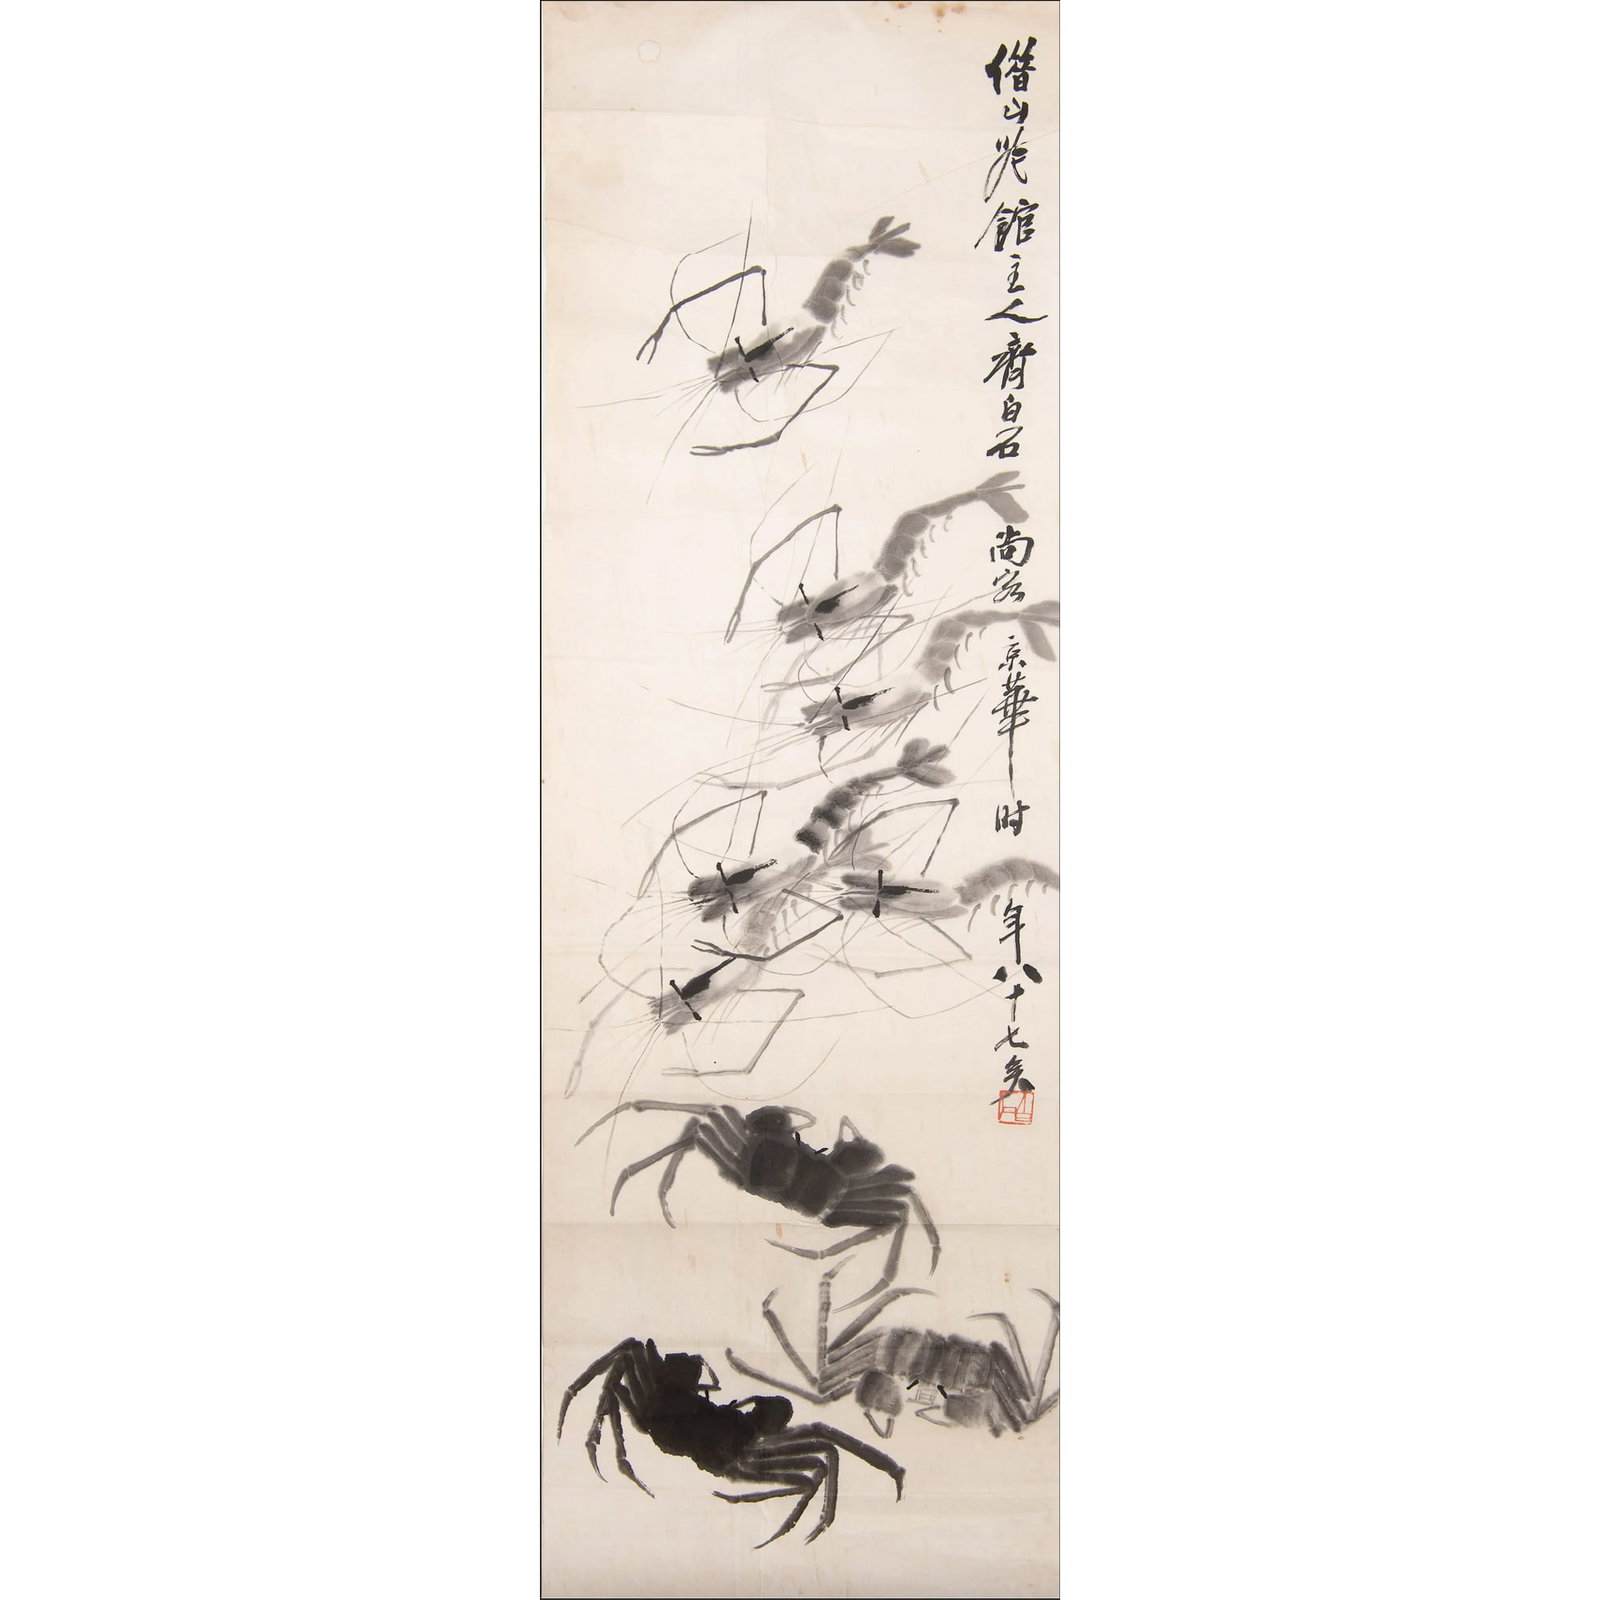 借山吟館主人齊白石尚客京華时年八十七矣
白石